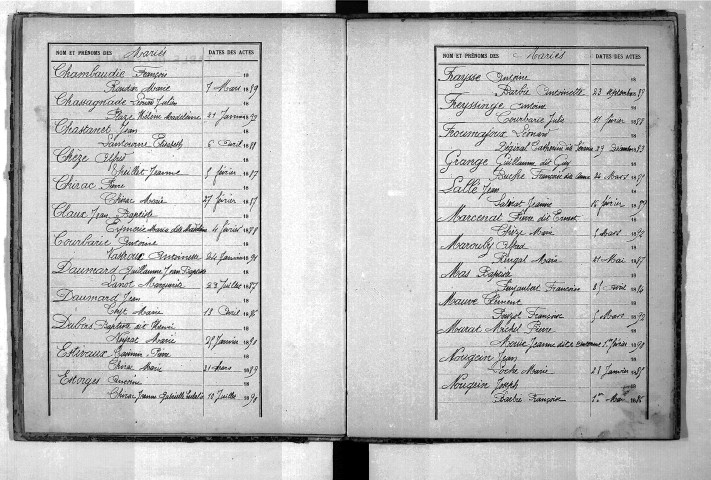 NOM ET PRÉNOMS DES Mariés DATES DES ACTES
Chambaudie François 18
Roudier Marie 7 Mars 1889
Chassagnade Louis Julien 18
Plaze Hélène Magdeleine 21 Janvier
Chastanet Jean 18
Lantourne Elisabeth 6 Avril 1889
Chèze Alfred 18
Theillet Jeanne 5 février 1887
Chirac Pierre 18
Chirac Marie 27 février 1887
Claux Jean Baptiste 18
Marie dite Madeleine 4 février 1888
Courbarie Antoine 18
Antoinette 24 Janvier 1891
Daumard Guillaume Jean Baptiste 18
Lanot Marguerite 23 Juillet 1887
Daumard Jean 18
Marie 18 Avril 1886
Dubas Baptiste dit Henri 18
Neyrac Marie 25 Janvier 1890
Estivaux Pierre 18
Chirac Marie 31 Mars 1889
Estorges Antoine 18
Chirac Jeanne Gabrielle 10 Juillet 1890
NOM ET PRÉNOMS DES Mariés DATES DES ACTES
Fraysse Antoine 18
Barbie Antoinette 23 Septembre
Freyssinge Antoine 18
Courbarie Julie 11 février 1888
Froumajoux Léonard 18
Catherine dite 29 Décembre 1883
Grange Guillaume dit Guy 18
Buche Françoise dite Anna 24 Mars
Sallé Jean 18
Jeanne 16 février
Marcenat Pierre dit Ernest 18
Chèze Marie 5 Mars 1892
Marouby Alfred 18
Bugat Marie 21 Mai 1887
Mas Baptiste 18
Françoise 25 Avril
Mauve Clément 18
Pouzol Françoise 5 Mars 1892
Murat Michel Pierre 18
Jeanne dite 1er février 1890
Nougein Jean 18
Marie 28 Janvier
Nougein Joseph 18
Barbie Françoise 1er Mai 1886